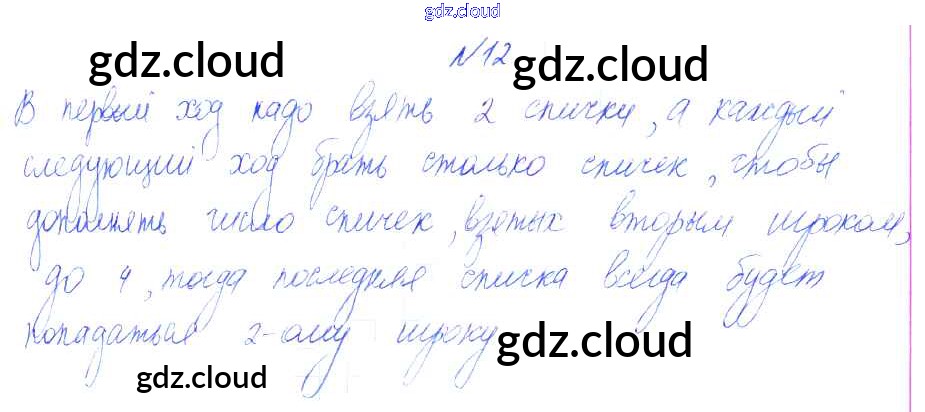 gdz.cloud
№12
gdz.cloud gdz.cloud
В первый ход надо взять 2 спички, а каждый
следующий ход брать столько спичек, чтобы
дополнять число спичек, взятых вторым игроком,
до 4, тогда последняя спичка всегда будет
попадаться 2-ому игроку
gdz.cloud
gdz.cloud